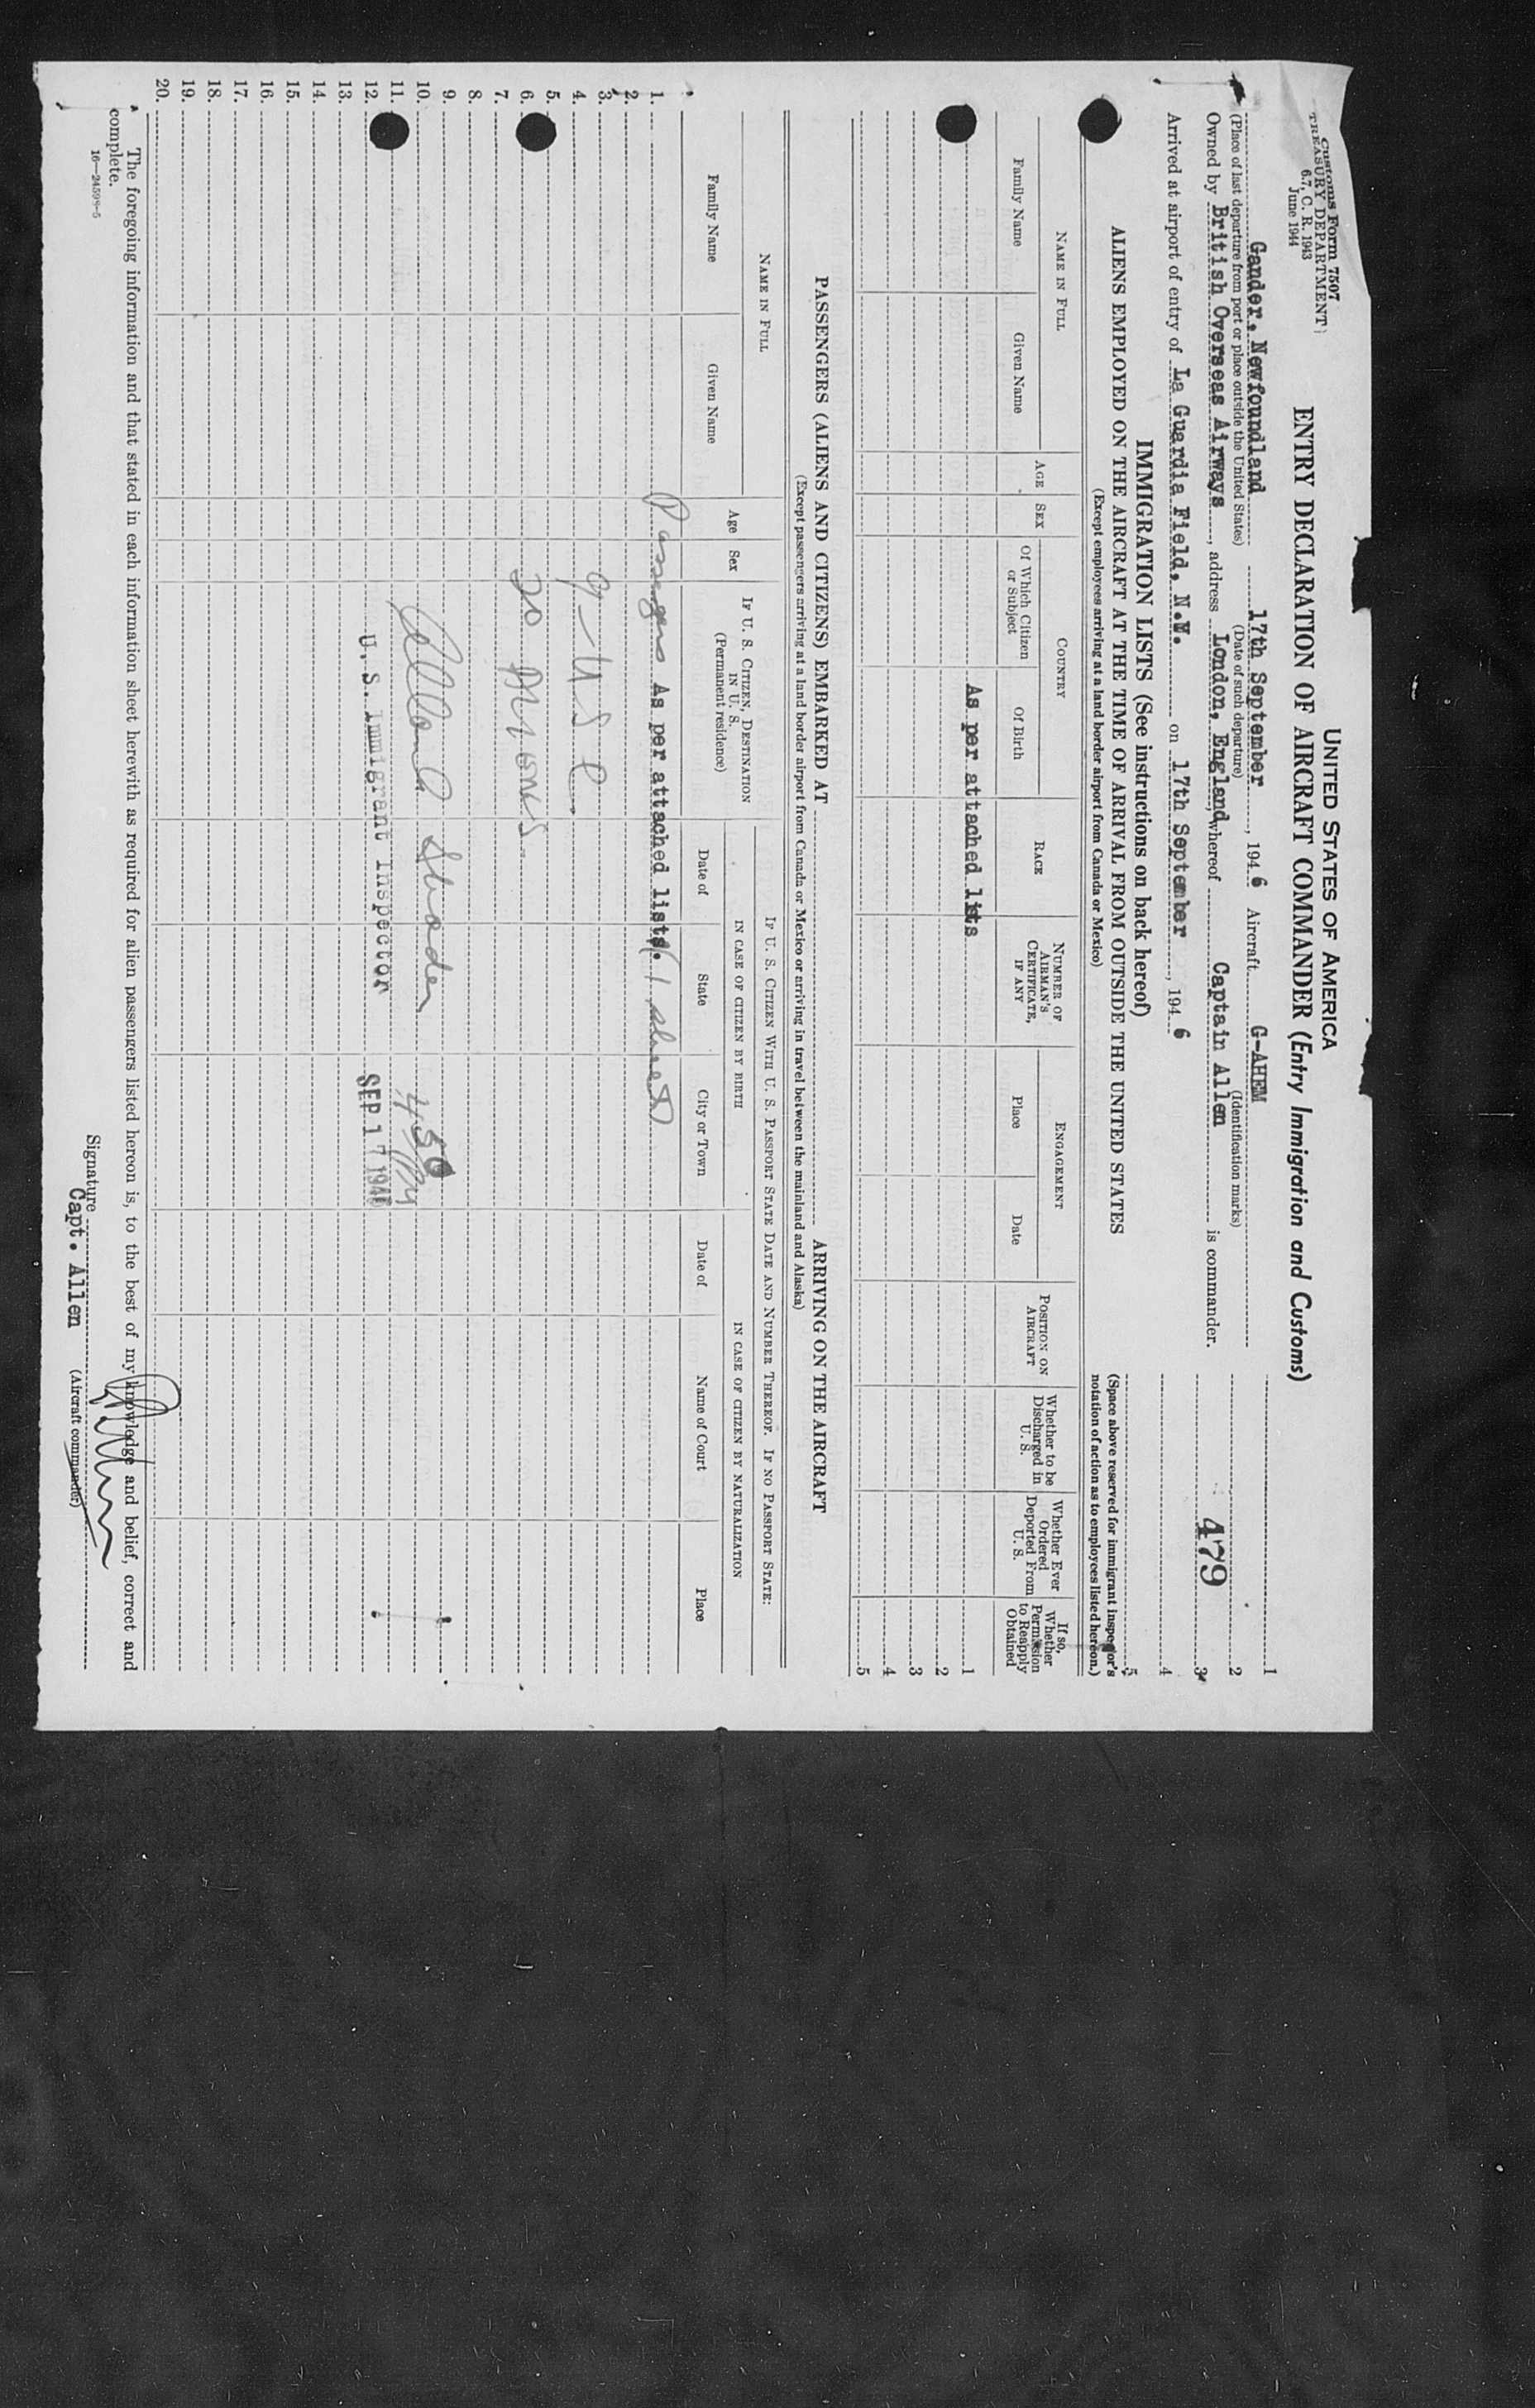 Customs Form 7507
TREASURY DEPARTMENT
6.7, C. R. 1943
June 1944
UNITED STATES OF AMERICA
ENTRY DECLARATION OF AIRCRAFT COMMANDER (Entry Immigration and Customs)
Gander, Newfoundland 17th September, 1946 Aircraft G-AHEM
(Place of last departure from port or place outside the United States) (Date of such departure) (Identification marks)
Owned by British Overseas Airways, address London, England, whereof Captain Allen is commander.
Arrived at airport of entry of La Guardia Field, N.Y. on 17th September, 1946
1
2
479 3
4
5
(Space above reserved for immigrant inspector's notation of action as to employees listed hereon.)
IMMIGRATION LISTS (See instructions on back hereof)
ALIENS EMPLOYED ON THE AIRCRAFT AT THE TIME OF ARRIVAL FROM OUTSIDE THE UNITED STATES
(Except employees arriving at a land border airport from Canada or Mexico)
NAME IN FULL
Family Name
Given Name
AGE
SEX
COUNTRY
Of Which Citizen or Subject
Of Birth
RACE
NUMBER OF AIRMAN'S CERTIFICATE, IF ANY
ENGAGEMENT
Place
Date
POSITION ON AIRCRAFT
Whether to be Discharged in U. S.
Whether Ever Ordered Deported From U. S.
If so, Whether Permission to Reapply Obtained
As per attached lists 1
2
3
4
5
PASSENGERS (ALIENS AND CITIZENS) EMBARKED AT ARRIVING ON THE AIRCRAFT
(Except passengers arriving at a land border airport from Canada or Mexico or arriving in travel between the mainland and Alaska)
NAME IN FULL
Family Name
Given Name
Age
Sex
IF U. S. CITIZEN, DESTINATION IN U. S.
(Permanent residence)
IF U. S. CITIZEN WITH U. S. PASSPORT STATE DATE AND NUMBER THEREOF. IF NO PASSPORT STATE:
IN CASE OF CITIZEN BY BIRTH
IN CASE OF CITIZEN BY NATURALIZATION
Date of
State
City or Town
Date of
Name of Court
Place
1. Passengers As per attached lists. (1 sheet)
2.
3.
4. 9-USC
5.
6. 20 Aliens.
7.
8.
9.
10.
11. 450 PM
12. U. S. Immigrant Inspector SEP 17 1946
13.
14.
15.
16.
17.
18.
19.
20.
The foregoing information and that stated in each information sheet herewith as required for alien passengers listed hereon is, to the best of my knowledge and belief, correct and
complete.
16—24598-5
Signature Capt. Allen
(Aircraft commander)